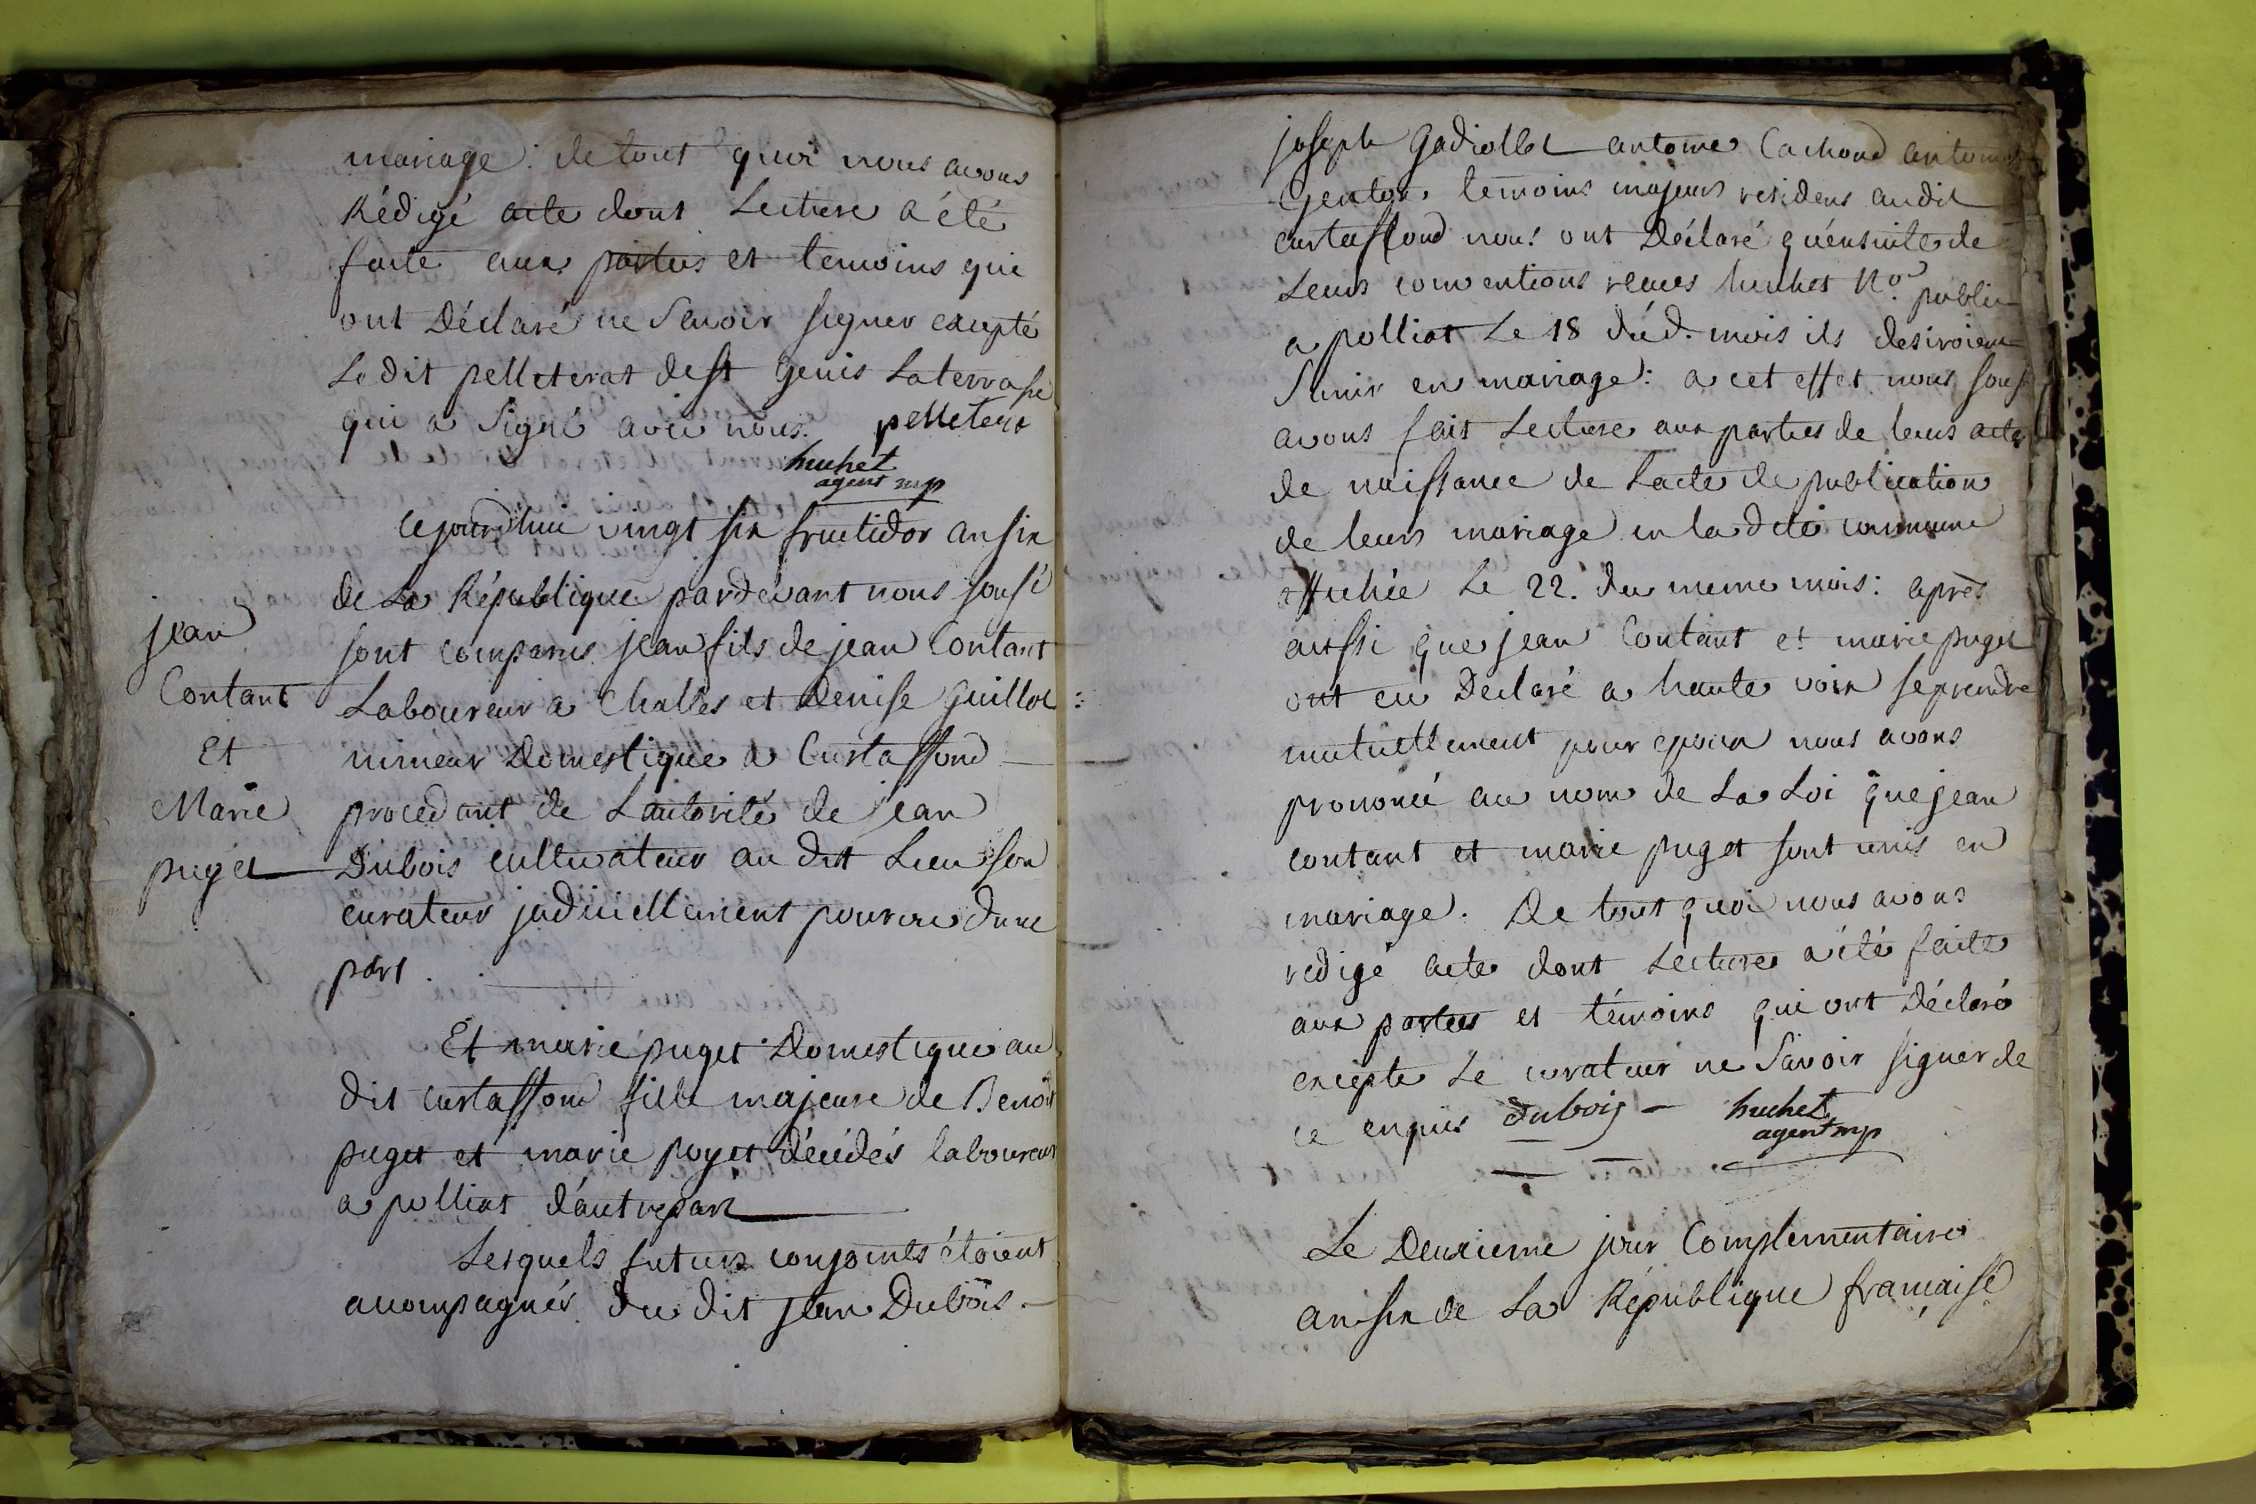 mariage : de tout quoi nous avons
Rédigé acte dont Lecture a été
faite aux parties et temoins qui
ont Déclaré ne Savoir signer excepté
Le dit pelleterat de st Genis Laterrasse
qui a Signé avec nous. pelleterat
huchet
agent mp
Cejourdhui vingt six fructidor an six
de La République pardevant nous souss
jean
sont comparus jean fils de jean Contant
Contant
Laboureur a Challes et Denise Guillot
Et
mineur Domestique a Curtaffond
Marie
procedant de Lautorité de jean
puget
Dubois cultivateur au dit Lieu son
curateur judiciellement pourvu dune
part.
Et marie puget Domestique au
dit curtaffond fille majeure de Benoit
puget et marie poyet décédés laboureurs
a polliat d'autrepart
Lesquels futurs conjoints étoient
acompagnés du dit jean Dubois.
joseph Gadiollet antoine Cachond antoine
temoins majeurs residens audit
curtaffond nous ont Déclaré qu'ensuite de
Leurs conventions reçues huchet Nore public
a polliat Le 18 dud. mois ils desiroient
Sunir en mariage : a cet effet nous souss
avons fait Lecture aux parties de leurs actes
de naissance de Lacte de publication
de leurs mariage en la dite commune
affichée Le 22. du meme mois : après
aussi que jean Contant et marie puget
ont eu Declaré a haute voix se prendre
mutuellement pour epoux nous avons
prononcé au nom de La Loi que jean
contant et marie puget sont unis en
mariage. De tout quoi nous avons
redigé acte dont Lecture a été faite
aux parties et témoins qui ont Déclaré
excepte Le curateur ne Savoir signer de
ce enquis Dubois — huchet
agent mp
Le Deuxieme jour Complementaire
an six de La République francaise